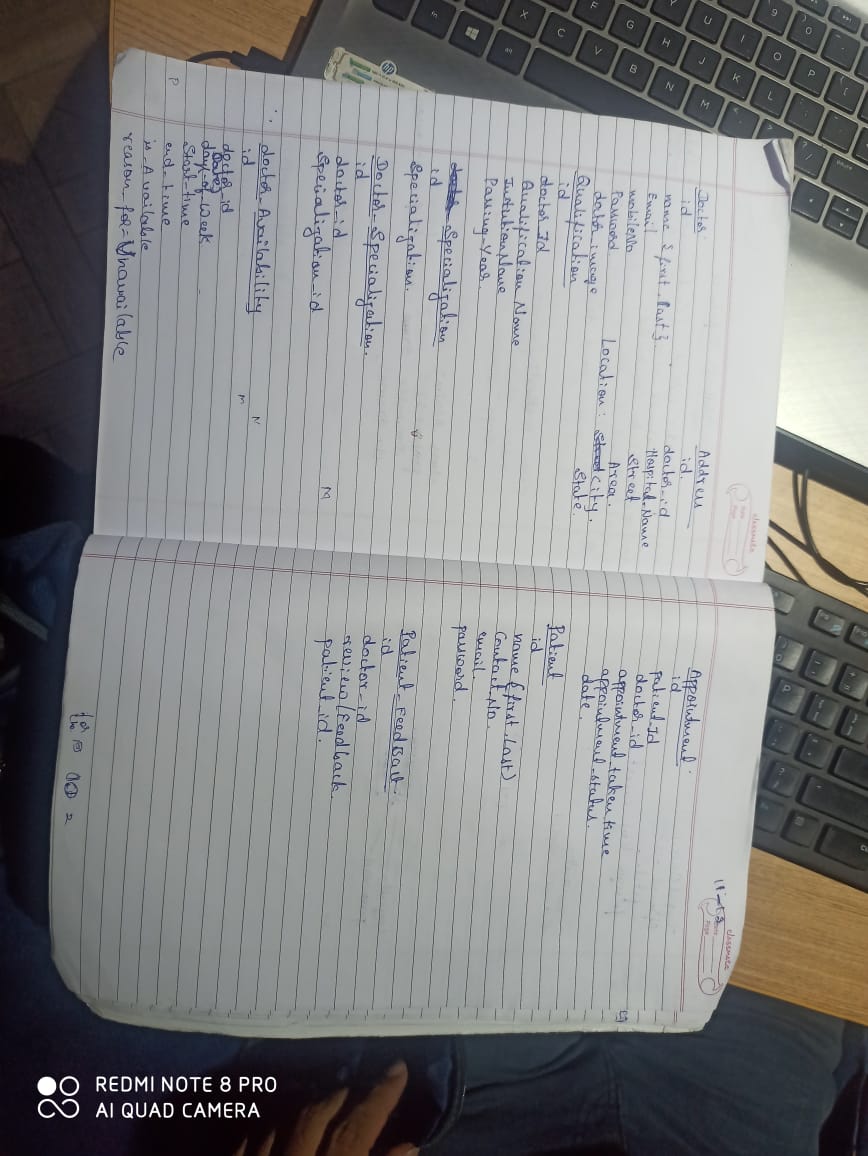 Doctor:
id
name { first, last }
Email
mobileNo
Password
doctor-image
Qualification
id
doctor Id
Qualification Name
Institution Name
Passing-Year.
Specialization
id
Specialization.
Doctor-Specialization.
id
doctor-id
Specialization-id
doctor-Availability
id
doctor-id
days-of-week
Start-time
end-time
is-Available
reason-for-Unavailable
Address
id.
doctor-id
Hospital-Name
Street
Area.
Location: City.
State.
classmate
Date
Page
M
N
M
P
Appointment.
id
Patient-Id
doctor-id
appointment taken time
appointment-status.
date.
Patient
id
name (first, Last)
Contact No.
email.
password.
Patient-Feedback.
id
doctor-id
review/Feedback.
patient-id.
classmate
Date
Page
hp
REDMI NOTE 8 PRO
AI QUAD CAMERA